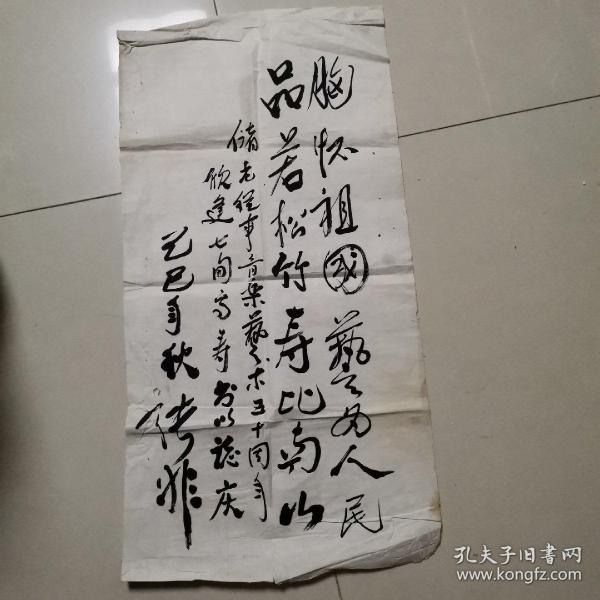 胸怀祖國藝为人民
品若松竹寿比南山
储老從事音樂藝术五十周年
欣逢七旬高寿书以誌庆
己巳年秋
孔夫子旧书网
www.kongfz.com